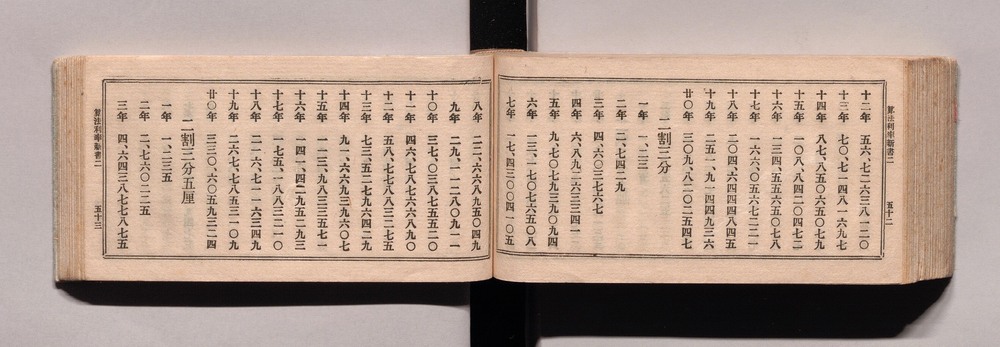 算法利率新書二 五十二
十二年 五六、七二六三八一二〇
十三年 七〇、七一四八一六九七
十四年 八七、八五〇六五〇七九
十五年 一〇八、八四二〇四七二
十六年 一三四、五五六五〇七八
十七年 一六六、〇五六七二二一
十八年 二〇四、六四四四八四五
十九年 二五一、九一四四九三六
廿〇年 三〇九、八二〇二五四七
二割三分
一年 一、二三
二年 二、七四二九
三年 四、六〇三七六七
四年 六、八九二六三三四一
五年 九、七〇七九三九〇九
六年 一三、一七〇七六五〇八
七年 一七、四三〇〇四一〇五
八年 二二、六六八九五〇四九
九年 二九、一一二八〇九一一
十〇年 三七、〇三八七五五二〇
十一年 四六、七八七六六八九〇
十二年 五八、七七八八三二七五
十三年 七三、五二七九六四二九
十四年 九一、六六九三九六〇七
十五年 一一三、九八三三五七一
十六年 一四一、四二九五二九三
十七年 一七五、一八八三二一〇
十八年 二一六、七一一六三四九
十九年 二六七、七八五三一〇九
廿〇年 三三〇、六〇五九三二四
二割三分五厘
一年 一、二三五
二年 二、七六〇二二五
三年 四、六四三八七七八七五
算法利率新書二 五十三